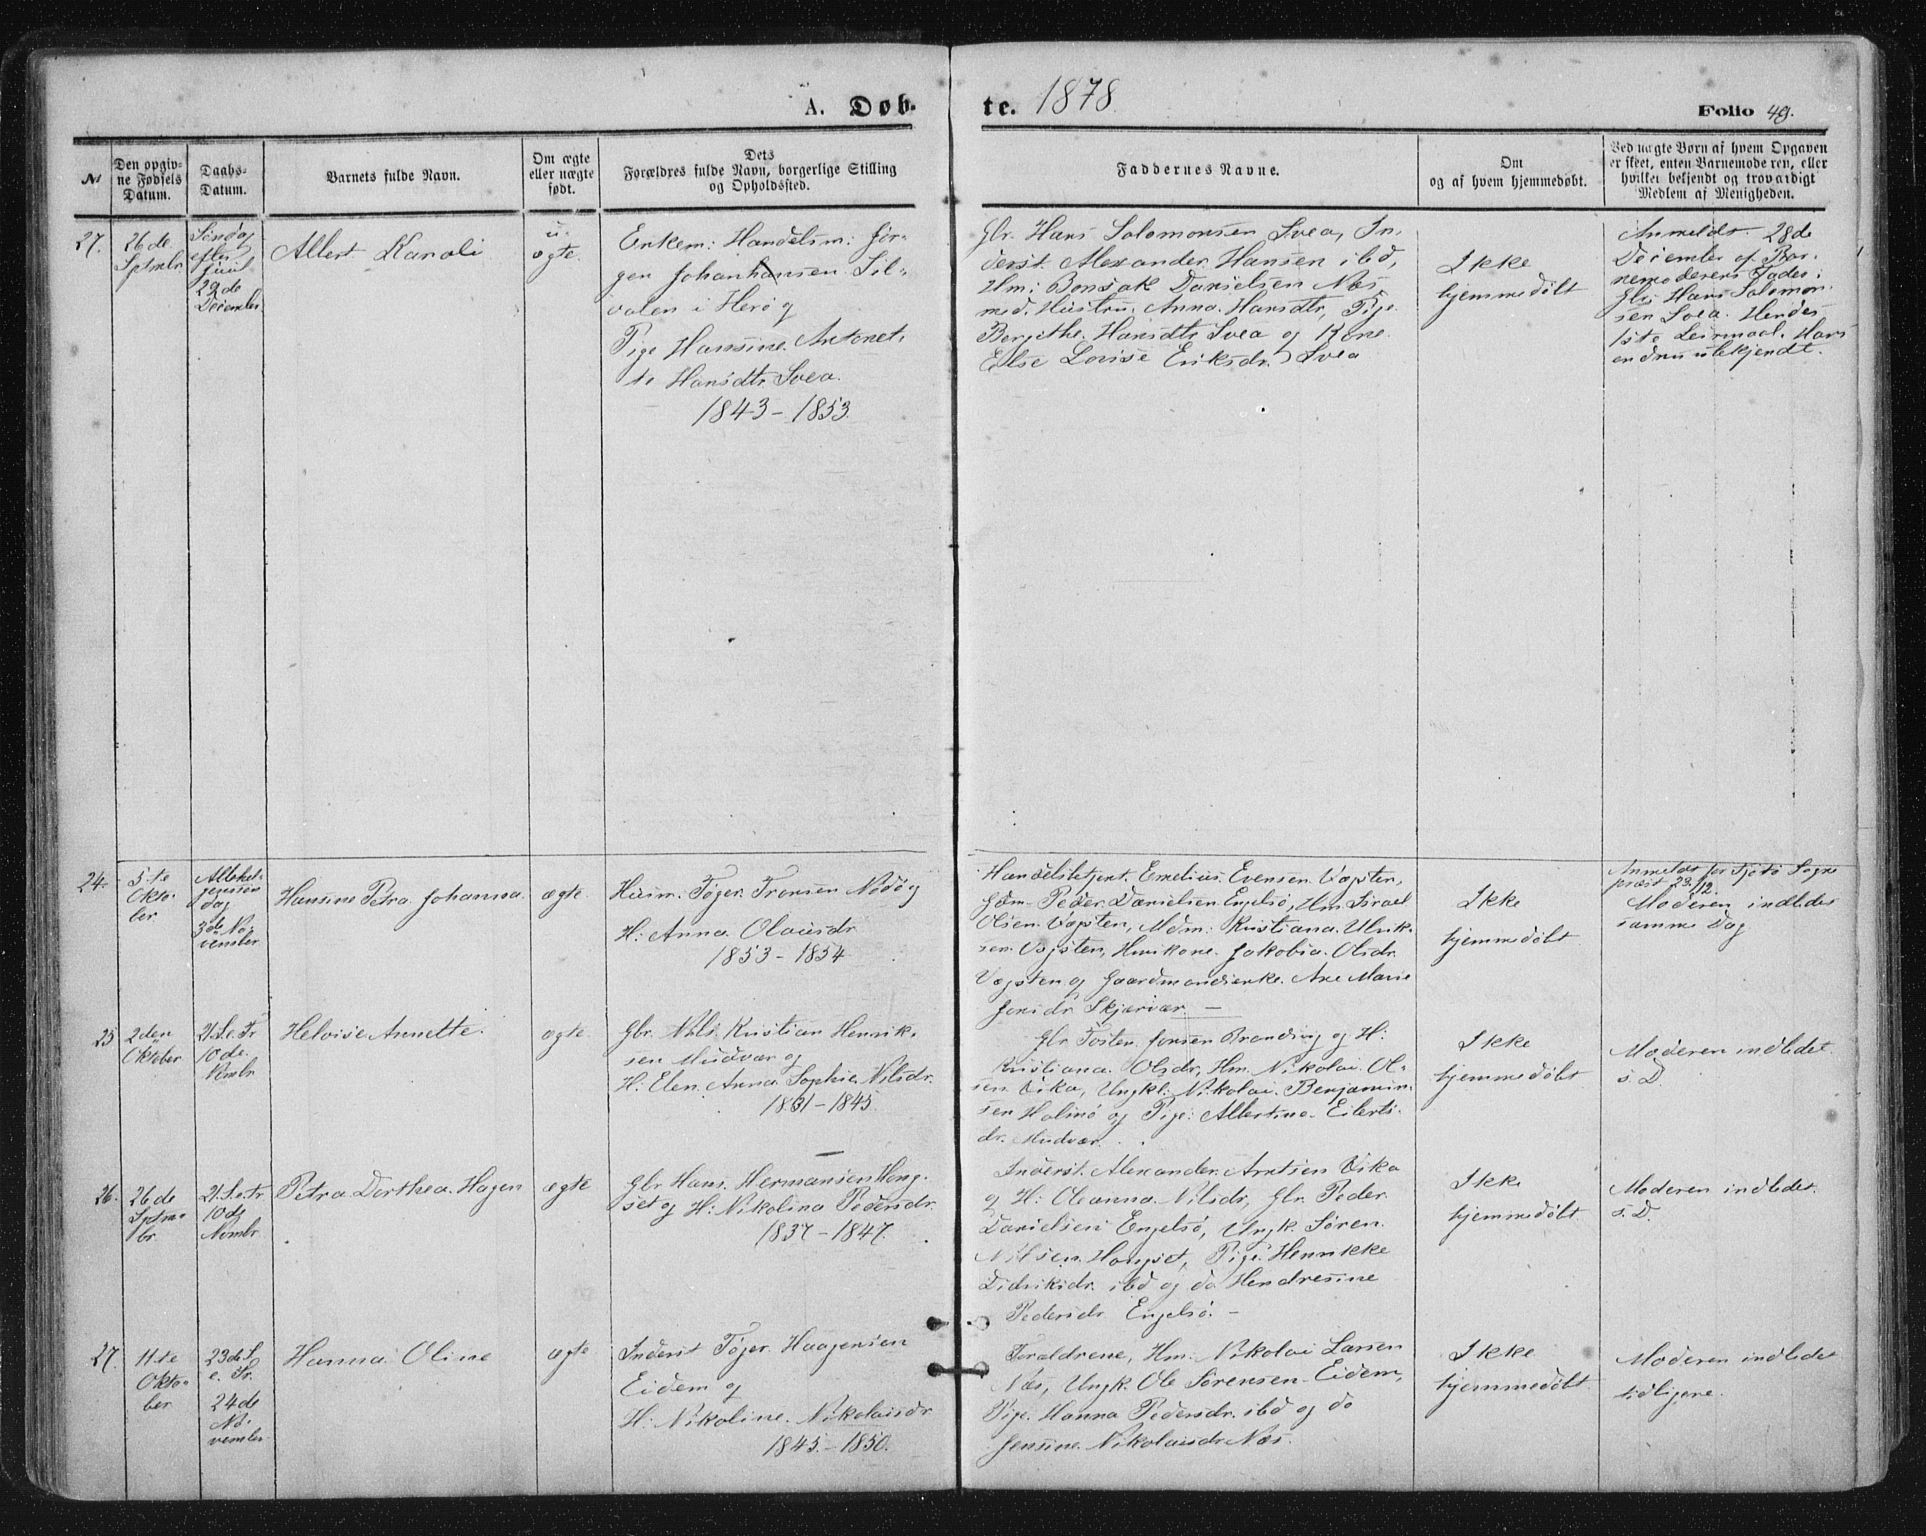 A. Døb-
te. 1878.
Folio 49.
№
Den opgiv-
ne Fødsels
Datum.
Daabs-
Datum.
Barnets fulde Navn.
Om ægte
eller uægte
født.
Dets
Forældres fulde Navn, borgerlige Stilling
og Opholdssted.
Faddernes Navne.
Om
og af hvem hjemmedøbt.
Ved uægte Børn af hvem Opgaven
er skeet, enten Barnemoderen, eller
hvilket bekjendt og troværdigt
Medlem af Menigheden.
27.
26de
Sptmbr.
Søndag
efter
Juul
29de
December
Albert Karoli
u-
ægte.
Enkem: Handelsm: Jør-
gen Johanhansen Sil-
valen i Herø og
Pige Hansine Antonet-
te Hansdtr. Svea.
1843 - 1853.
Gbr. Hans Solomonsen Svea, In-
derst. Alexander Hansen ibd,
Hm: Bonsak Danielsen Næs
med Hustru Anna Hansdtr, Pige
Bergithe Hansdtr Svea og Kone
Else Lovise Eriksdr. Svea
Ikke
hjemmedøbt
Anmeldt 28de
December af Bar-
nemoderens Fader:
Gbr. Hans Salomon-
sen Svea. Hendes
1ste Leirmaal. Hans
endnu ubekjendt.
24.
5te
Okto-
ber
Allehel-
gensson
dag
3de No-
vember
Hansine Petra Johanna.
ægte.
Husm. Tøger Tronsen Nødø og
H: Anna Olausdr
1853 - 1854
Handelsbetjent. Emelius Evensen Vægsten,
Gdm. Peder Danielsen Engelsø, Hm. Israel
Olsen Vægsten, Mdm: Kristiana Ulrik-
sen Vægsten, Huskone Jakobia Olsdr.
Vægsten og Gaardmandsenke Ane Marie
Jonsdr Skjærvær. —
Ikke
hjemmedøbt
Anmeldt for Tjøtø Sogne
præst 23/12.
Moderen indledet
samme Dag
25
2den
Oktober
21.S.e.Tr
10de
Nvmbr.
Heloise Annette.
ægte.
Gbr. Nils Kristian Henrik-
sen Mudvær og
H: Elen Anna Sophie Nilsdr.
1831 - 1845.
Gbr Tosten Jonsen Brænding og H:
Kristiana Olsdr, Hm. Nikolai Ol-
sen Vika, Ungkl: Nikolai Benjamin-
sen Holmø og Pige: Albertine Eilerts-
dr. Mudvær.
Ikke
hjemmedøbt
Moderen indledet
s. D.
26.
26de
Sptm-
br
21.S.e.Tr
10de
Nvmbr.
Petra Dorthea Hagen
ægte
Gbr Hans Hermansen Hong-
set og H: Nikolina Pedersdr.
1837 - 1847.
Inderst. Alexander Arntsen Vika
og H: Oleanna Nilsdr, Gbr. Peder
Danielsen Engelsø, Ungk. Søren
Nilsen Hongset, Pige Henrikke
Didriksdr. ibd og do Hendresine
Pedersdr Engelsø. —
Ikke
hjemmedøbt
Moderen indledet
s. D.
27.
11te
Okto-
ber
23de S.
e. Tr.
24de
No-
vember
Hanna Oline
ægte
Inderst Tøger Haagensen
Eidem og
H: Nikoline Nikolaisdr
1845. - 1850.
Forældrene, Hm: Nikolai Larsen
Næs, Ungk. Ole Sørensen Eidem,
Pige Hanna Pedersdr. ibd og do
Jensine Nikolaisdr Næs.
Ikke
hjemmedøbt
Moderen indledet
tidligere.